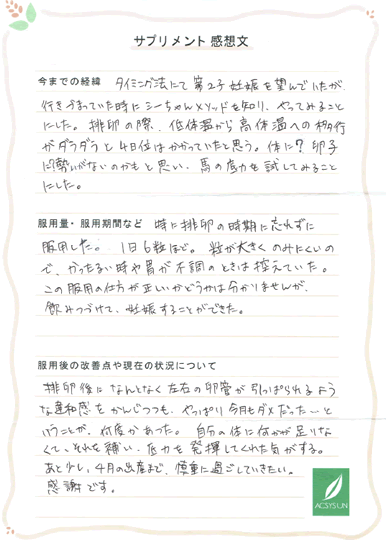 サプリメント 感想文
今までの経緯 タイミング法にて第2子妊娠を望んでいたが、
行きづまっていた時にシーちゃんメソッドを知り、やってみること
にした。排卵の際、低体温から高体温への移行
がダラダラと4日位はかかっていたと思う。体に?卵子
に?勢いがないのかもと思い、馬の底力を試してみること
にした。
服用量・服用期間など 特に排卵の時期に忘れずに
服用した。1日6粒ほど。粒が大きくのみにくいの
で、かったるい時や胃が不調のときは控えていた。
この服用の仕方が正しいかどうかは分かりませんが、
飲みつづけて、妊娠することができた。
服用後の改善点や現在の状況について
排卵後になんとなく左右の卵管が引っぱられるよう
な違和感をかんじつつも、やっぱり今月もダメだった…と
いうことが、何度かあった。自分の体に何かが足りなく
て、それを補い、底力を発揮してくれた気がする。
あと少し、4月の出産まで、慎重に過ごしていきたい。
感謝です。
ACSYSUN